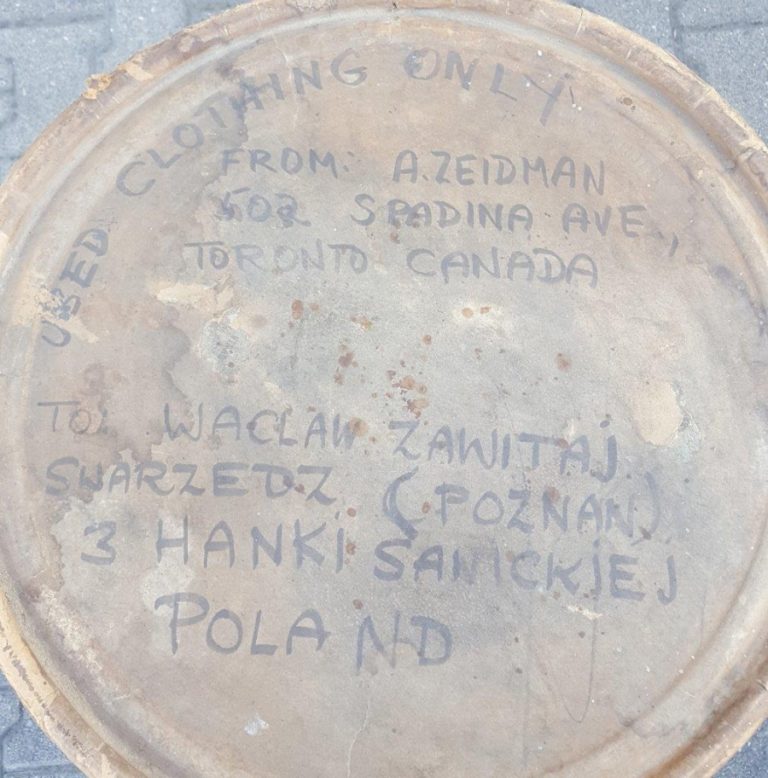 USED CLOTHING ONLY
FROM: A. ZEIDMAN
502 SPADINA AVE.,
TORONTO CANADA
TO: WACLAW ZAWITAJ
SWARZEDZ (POZNAN)
3 HANKI SAWICKIEJ
POLAND